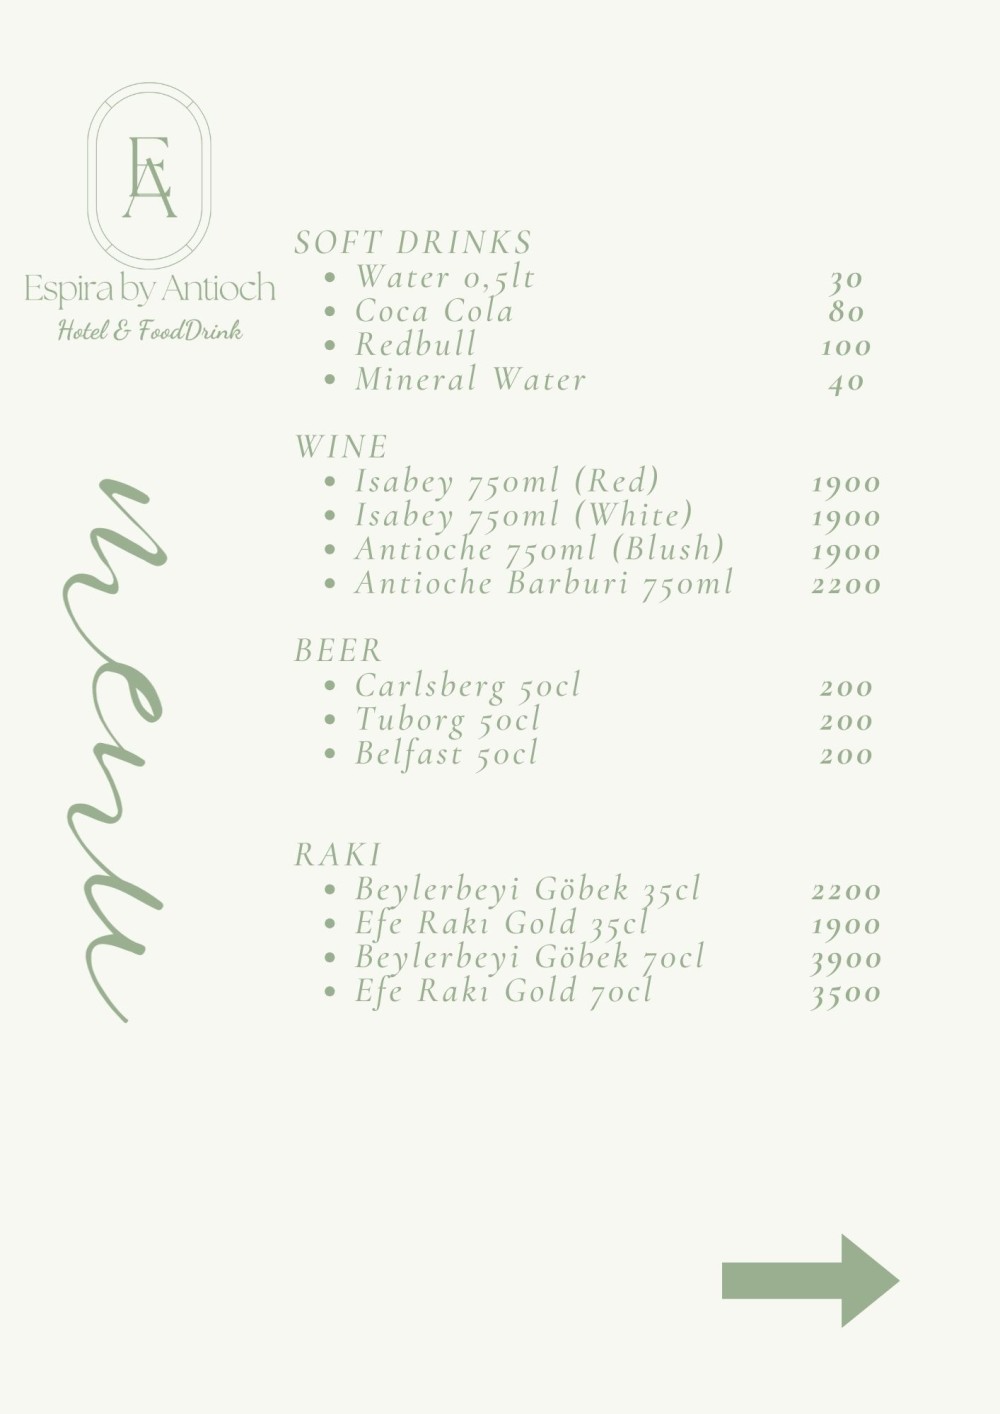 EA
Espira by Antioch
Hotel & FoodDrink
menu
SOFT DRINKS
• Water 0,5lt 30
• Coca Cola 80
• Redbull 100
• Mineral Water 40
WINE
• Isabey 750ml (Red) 1900
• Isabey 750ml (White) 1900
• Antioche 750ml (Blush) 1900
• Antioche Barburi 750ml 2200
BEER
• Carlsberg 50cl 200
• Tuborg 50cl 200
• Belfast 50cl 200
RAKI
• Beylerbeyi Göbek 35cl 2200
• Efe Rakı Gold 35cl 1900
• Beylerbeyi Göbek 70cl 3900
• Efe Rakı Gold 70cl 3500